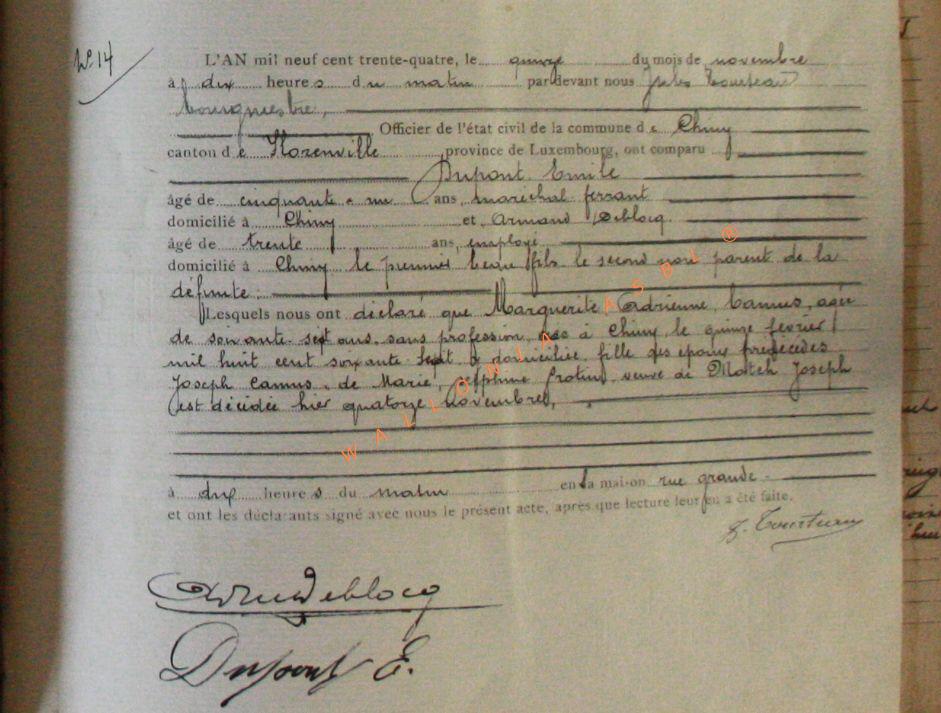 No 14
L'AN mil neuf cent trente-quatre, le quinze du mois de novembre
à dix heures du matin par devant nous Jules Tourteau
bourgmestre,
Officier de l'état civil de la commune de Chiny
canton de Florenville, province de Luxembourg, ont comparu
Dupont Emile
âgé de cinquante-un ans, maréchal ferrant
domicilié à Chiny et Armand Deblocq
âgé de trente ans, employé
domicilié à Chiny le premier beau fils le second non parent de la
défunte.
Lesquels nous ont déclaré que Marguerite Adrienne Camus, agée
de soixante-sept ans, sans profession, née à Chiny le quinze février
mil huit cent soixante sept y domiciliée, fille des époux prédécédés
Joseph Camus, de Marie, veuve de Joseph
est décédée hier quatorze novembre,
à dix heures du matin en sa maison rue grande.
et ont les déclarants signé avec nous le présent acte, après que lecture leur en a été faite.
J. Tourteau
Deblocq
Dupont E.
WALLONIA ASBL ®